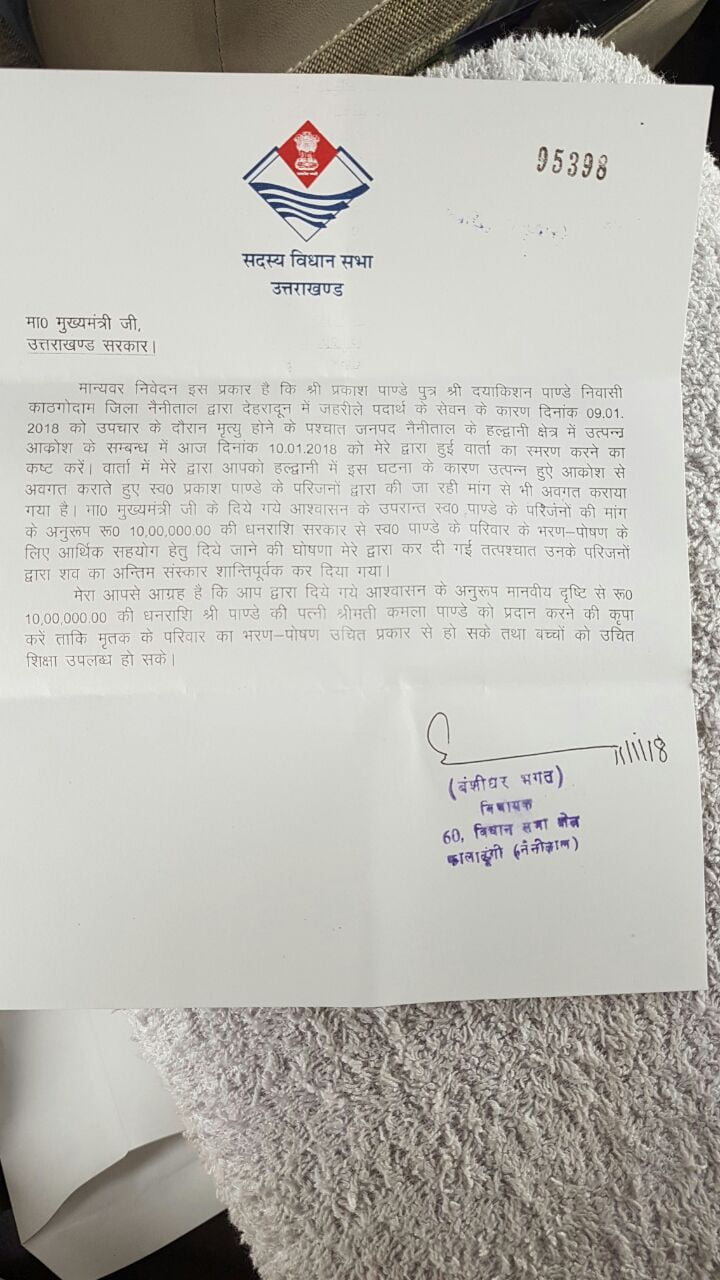 95398
सदस्य विधान सभा
उत्तराखण्ड
मा0 मुख्यमंत्री जी,
उत्तराखण्ड सरकार।
मान्यवर निवेदन इस प्रकार है कि श्री प्रकाश पाण्डे पुत्र श्री दयाकिशन पाण्डे निवासी
काठगोदाम जिला नैनीताल द्वारा देहरादून में जहरीले पदार्थ के सेवन के कारण दिनांक 09.01.
2018 को उपचार के दौरान मृत्यु होने के पश्चात जनपद नैनीताल के हल्द्वानी क्षेत्र में उत्पन्न
आकोश के सम्बन्ध में आज दिनांक 10.01.2018 को मेरे द्वारा हुई वार्ता का स्मरण करने का
कष्ट करें। वार्ता में मेरे द्वारा आपको हल्द्वानी में इस घटना के कारण उत्पन्न हुऐ आकोश से
अवगत कराते हुए स्व0 प्रकाश पाण्डे के परिजनों द्वारा की जा रही मांग से भी अवगत कराया
गया है। मा0 मुख्यमंत्री जी के दिये गये आश्वासन के उपरान्त स्व0 पाण्डे के परिजनों की मांग
के अनुरूप रू0 10,00,000.00 की धनराशि सरकार से स्व0 पाण्डे के परिवार के भरण–पोषण के
लिए आर्थिक सहयोग हेतु दिये जाने की घोषणा मेरे द्वारा कर दी गई तत्पश्चात उनके परिजनों
द्वारा शव का अन्तिम संस्कार शान्तिपूर्वक कर दिया गया।
मेरा आपसे आग्रह है कि आप द्वारा दिये गये आश्वासन के अनुरूप मानवीय दृष्टि से रू0
10,00,000.00 की धनराशि श्री पाण्डे की पत्नी श्रीमती कमला पाण्डे को प्रदान करने की कृपा
करें ताकि मृतक के परिवार का भरण–पोषण उचित प्रकार से हो सके तथा बच्चों को उचित
शिक्षा उपलब्ध हो सके।
11/1/18
(बंशीधर भगत)
विधायक
60, विधान सभा क्षेत्र
कालाढूंगी (नैनीताल)